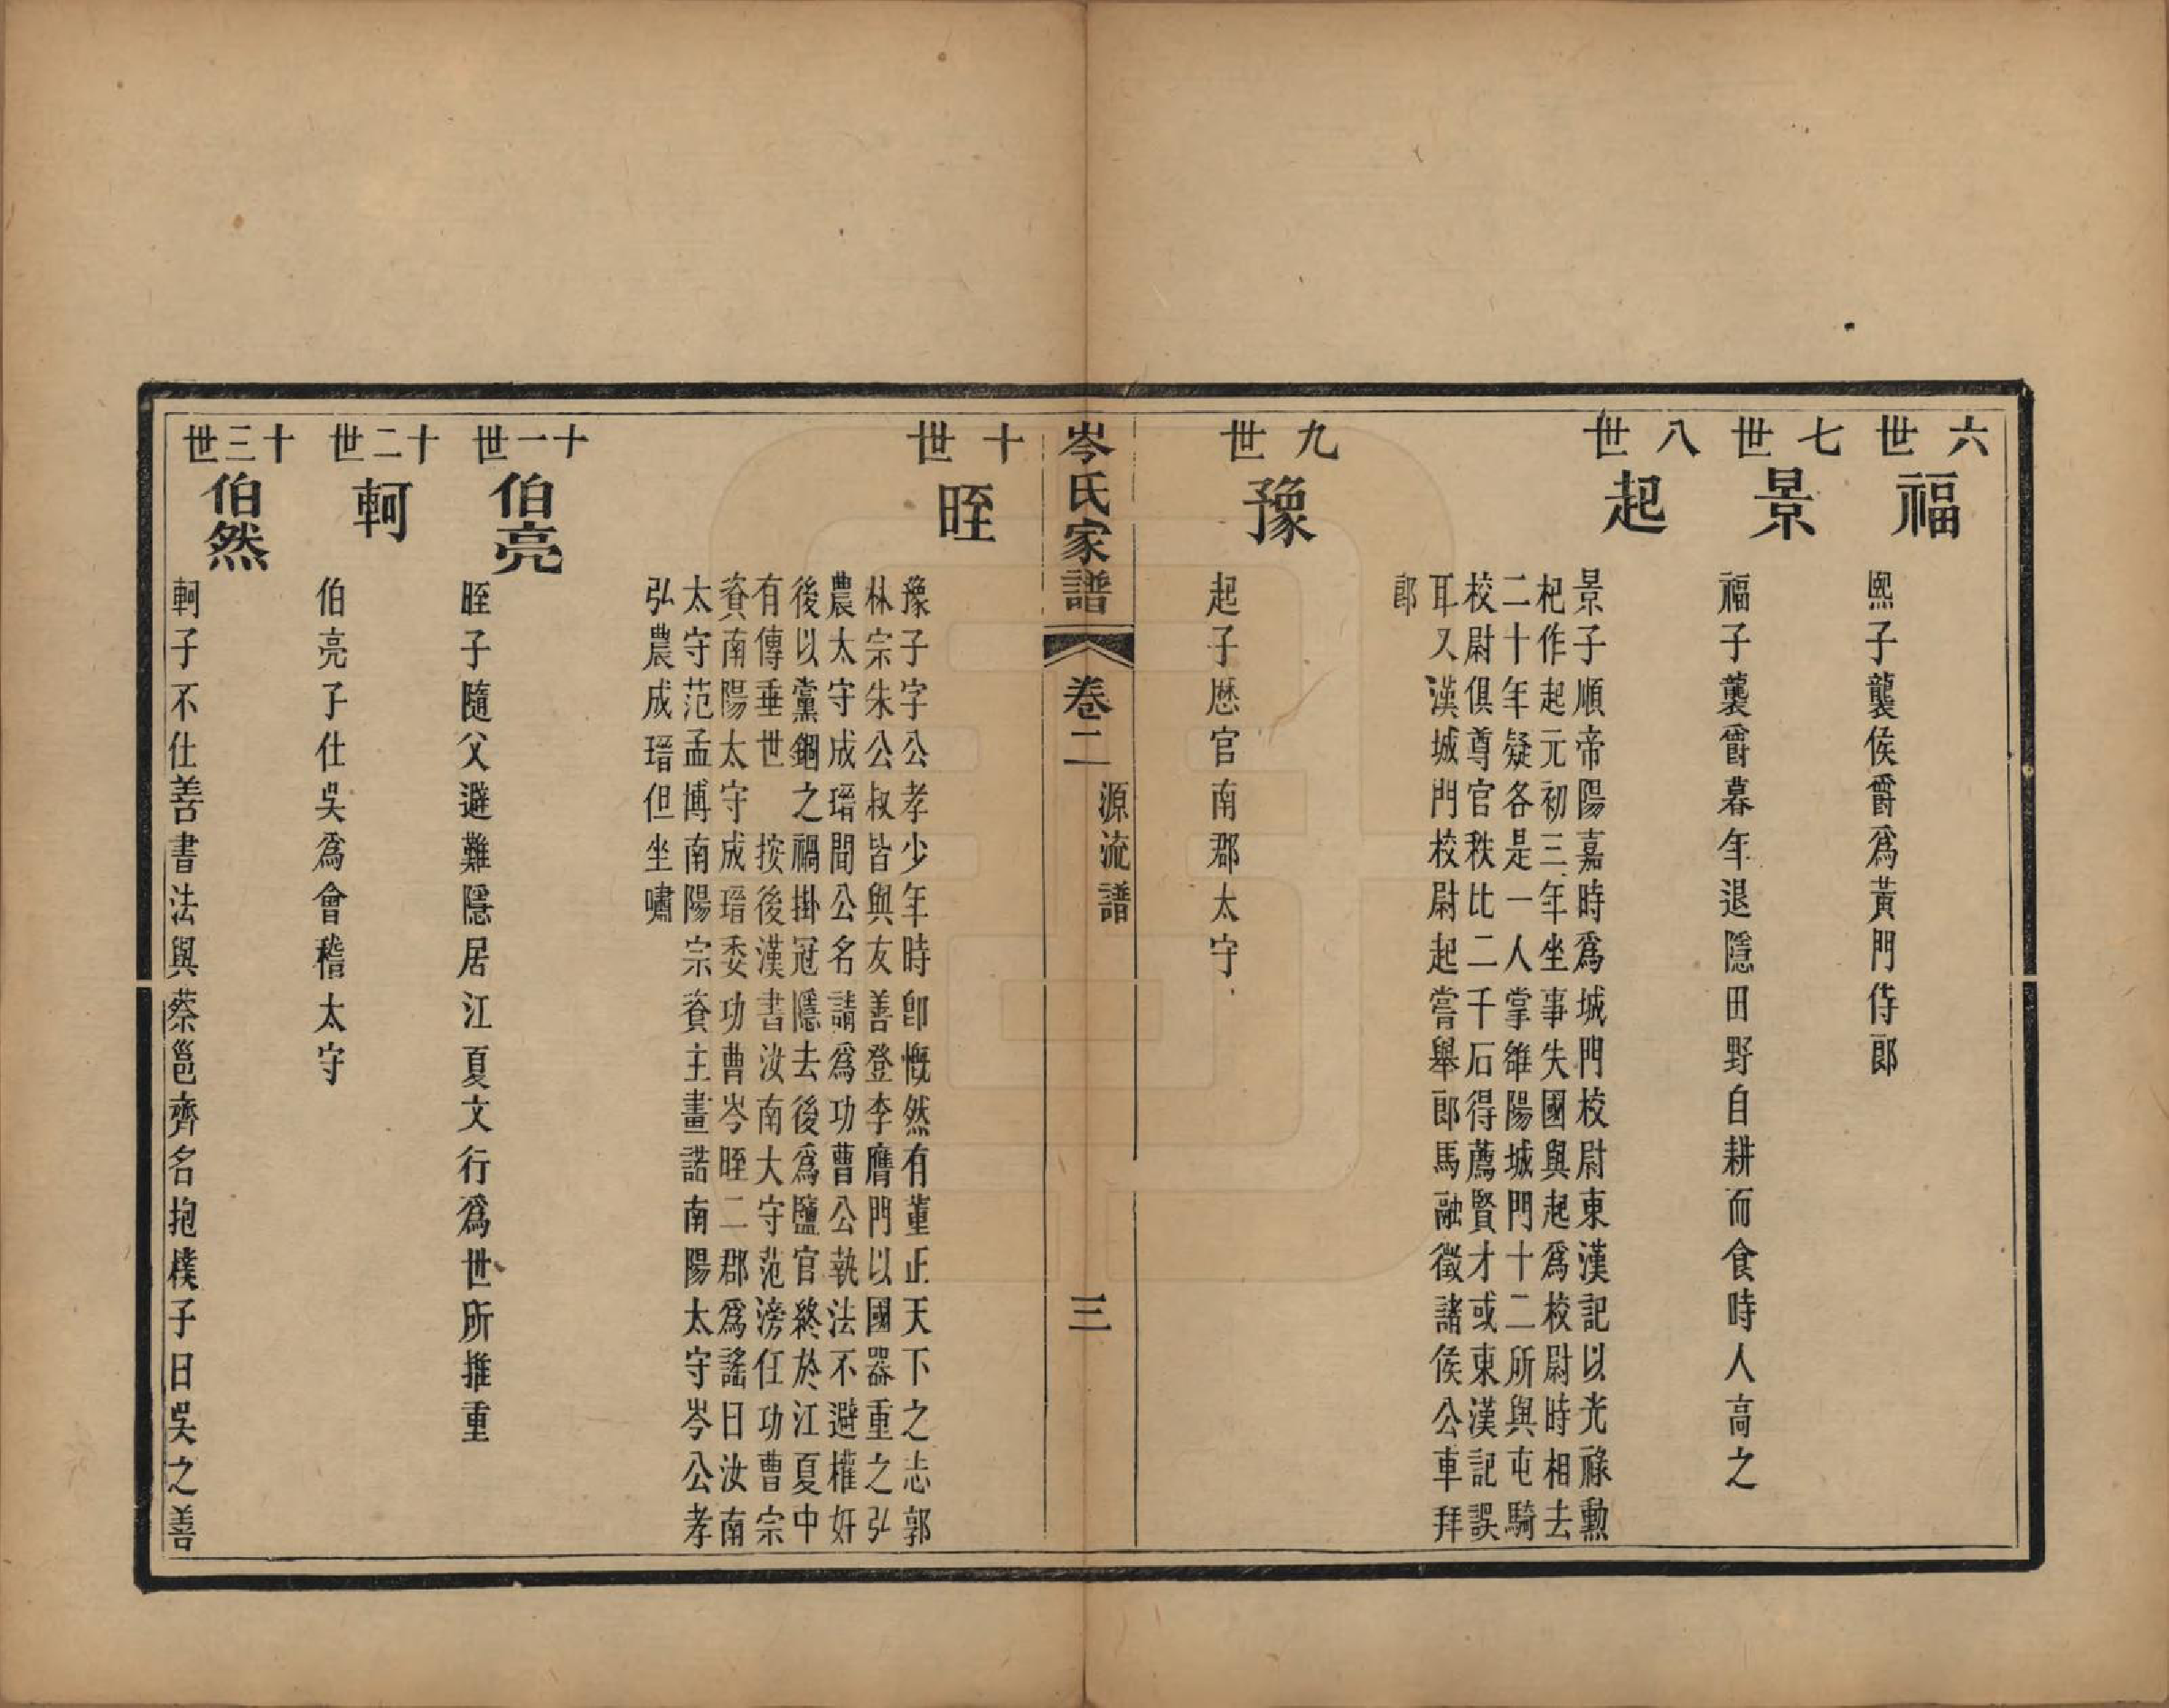 六世
福
熙子龍襲侯爵爲黃門侍郎
七世
景
福子襲爵暮年退隱田野自耕而食時人高之
八世
起
景子順帝陽嘉時爲城門校尉東漢記以光祿勳
杞作起元初三年坐事失國與起爲校尉時相去
二十年疑各是一人掌雒陽城門十二所與屯騎
校尉俱尊官秩比二千石得薦賢才或東漢記誤
耳又漢城門校尉起嘗舉郎馬融徵諸侯公車拜
郎
九世
豫
起子歷官南郡太守
岑氏家譜
卷二
源流譜
三
十世
晊
豫子字公孝少年時卽慨然有董正天下之志郭
林宗朱公叔皆與友善登李膺門以國器重之弘
農太守成瑨聞公名請爲功曹公執法不避權奸
後以黨錮之禍掛冠隱去後爲鹽官終於江夏中
有傳垂世 按後漢書汝南大守范滂任功曹宗
資南陽太守成瑨委功曹岑晊二郡爲謠曰汝南
太守范孟博南陽宗資主畫諾南陽太守岑公孝
弘農成瑨但坐嘯
十一世
伯亮
晊子隨父避難隱居江夏文行爲世所推重
十二世
軻
伯亮子仕吳爲會稽太守
十三世
伯然
軻子不仕善書法與蔡邕齊名抱樸子曰吳之善